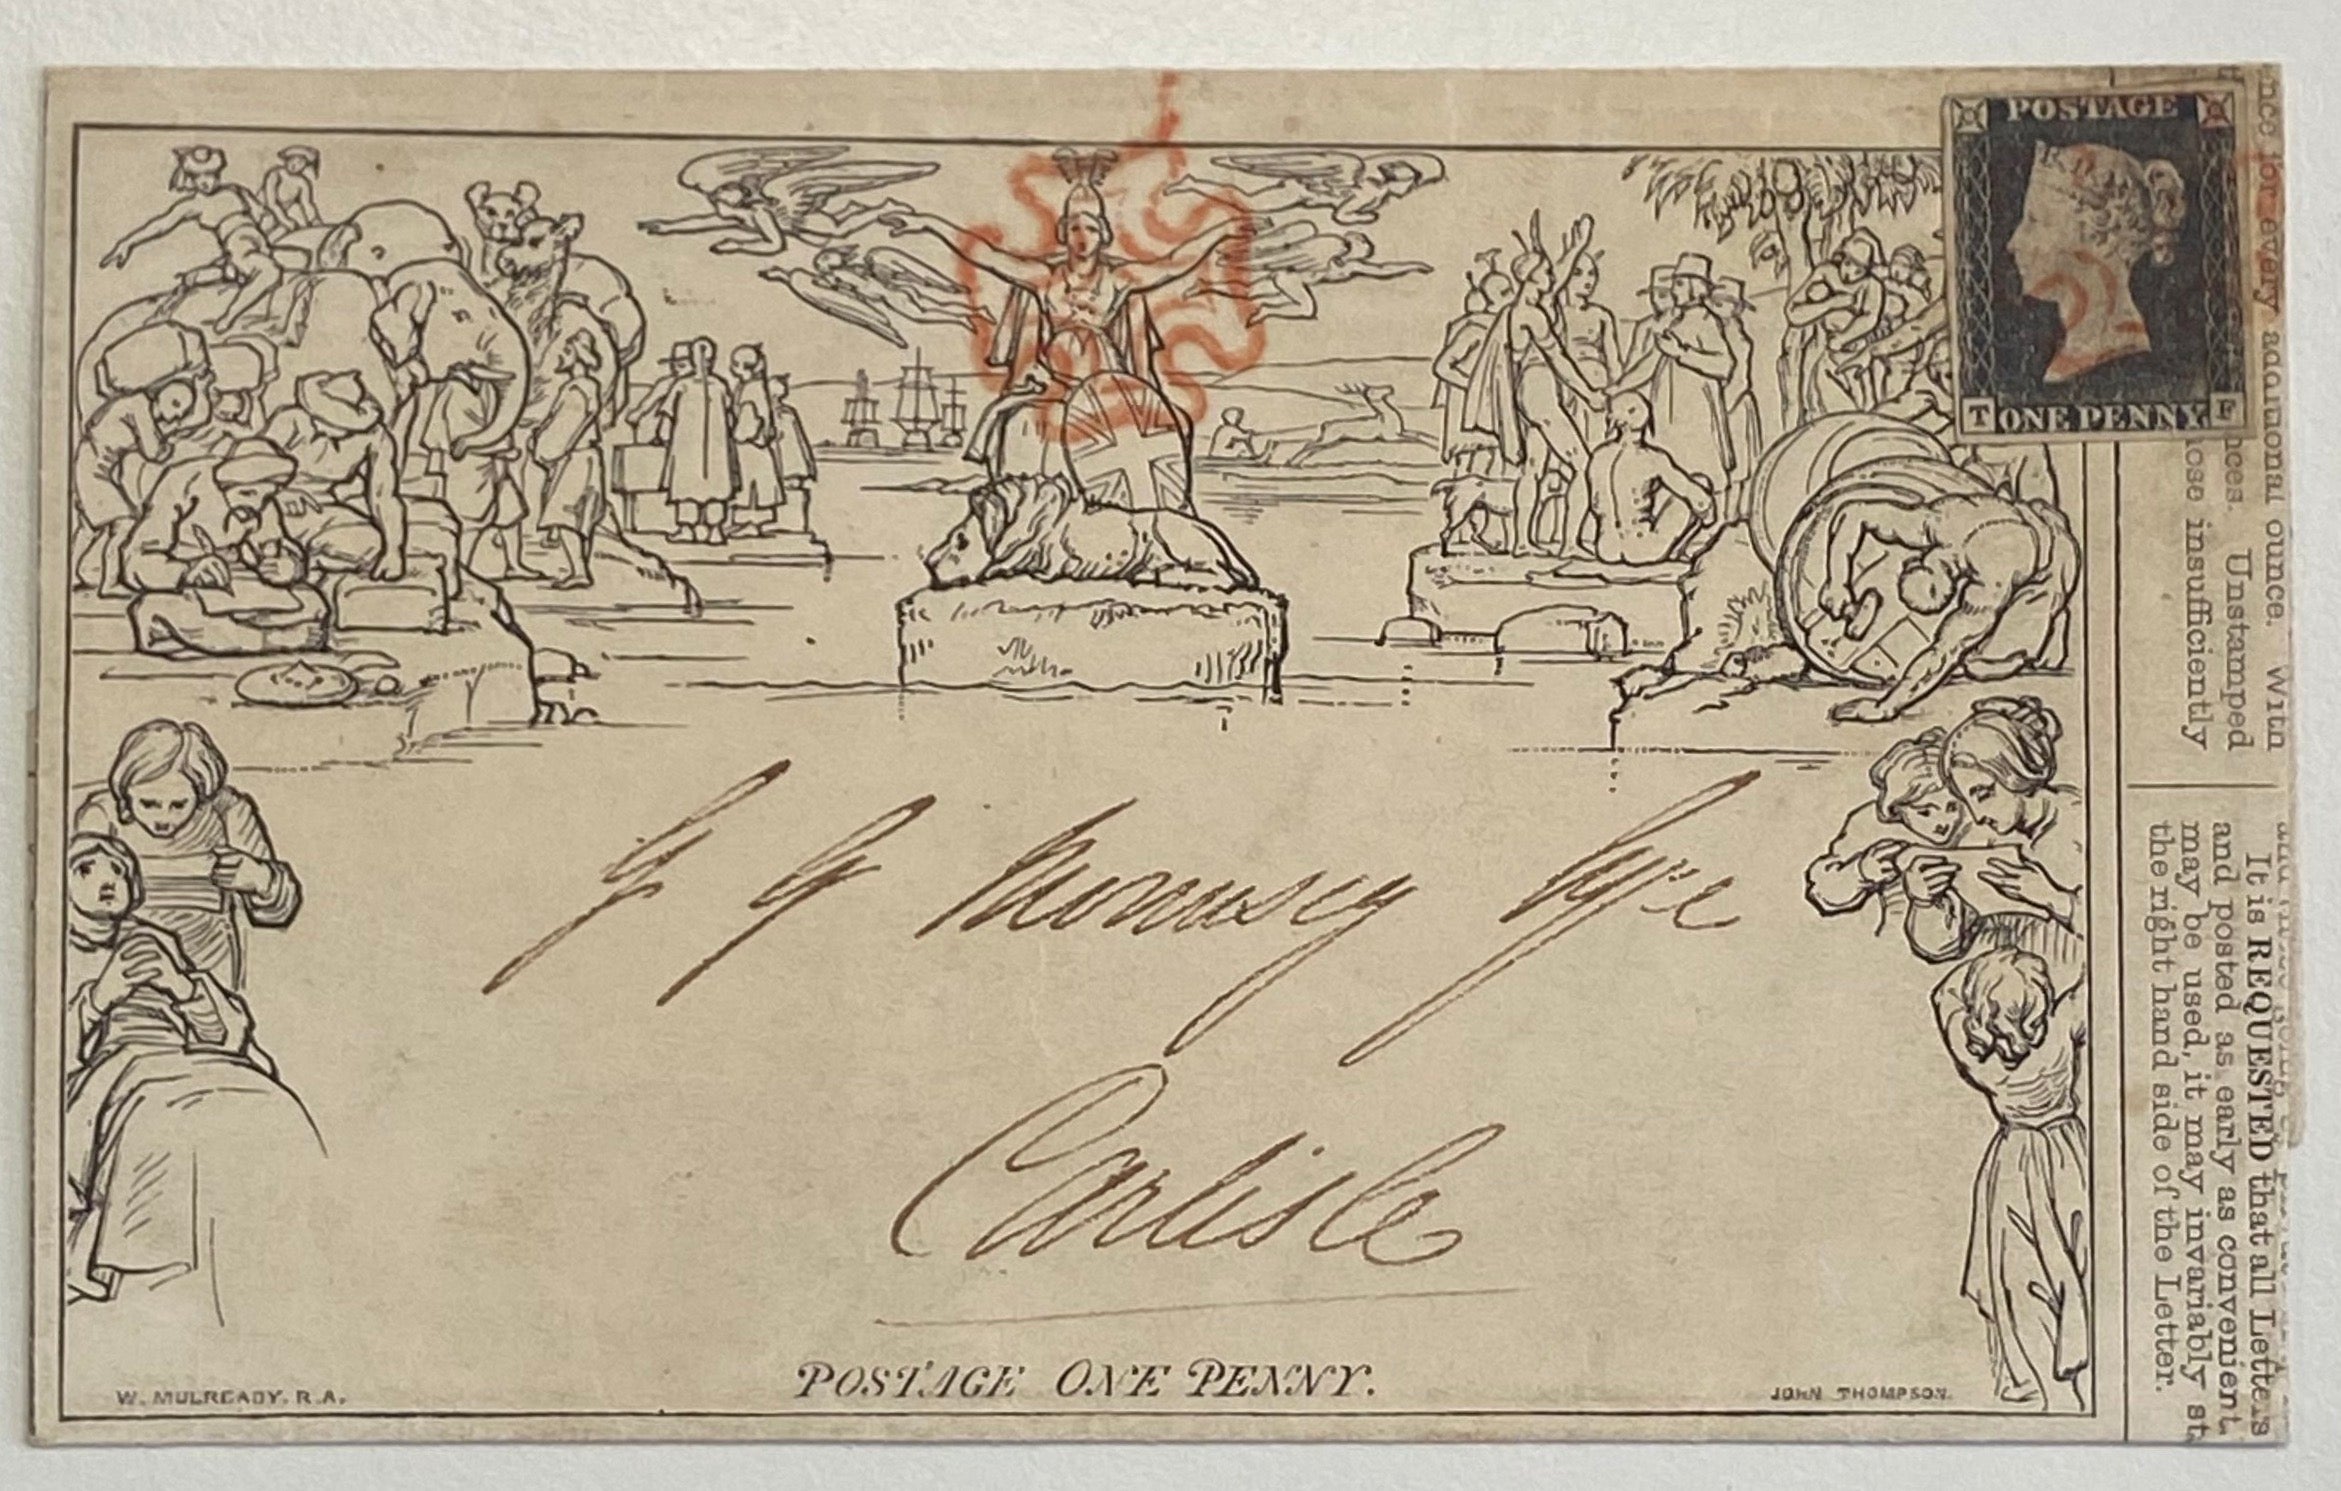 POSTAGE
T ONE PENNY F
G G Mounsey Esqre
Carlisle
POSTAGE ONE PENNY.
W. MULREADY. R.A.
JOHN THOMPSON.
for every additional ounce. With
Unstamped
insufficiently
It is REQUESTED that all Letters
and posted as early as convenient.
may be used, it may invariably
the right hand side of the Letter.